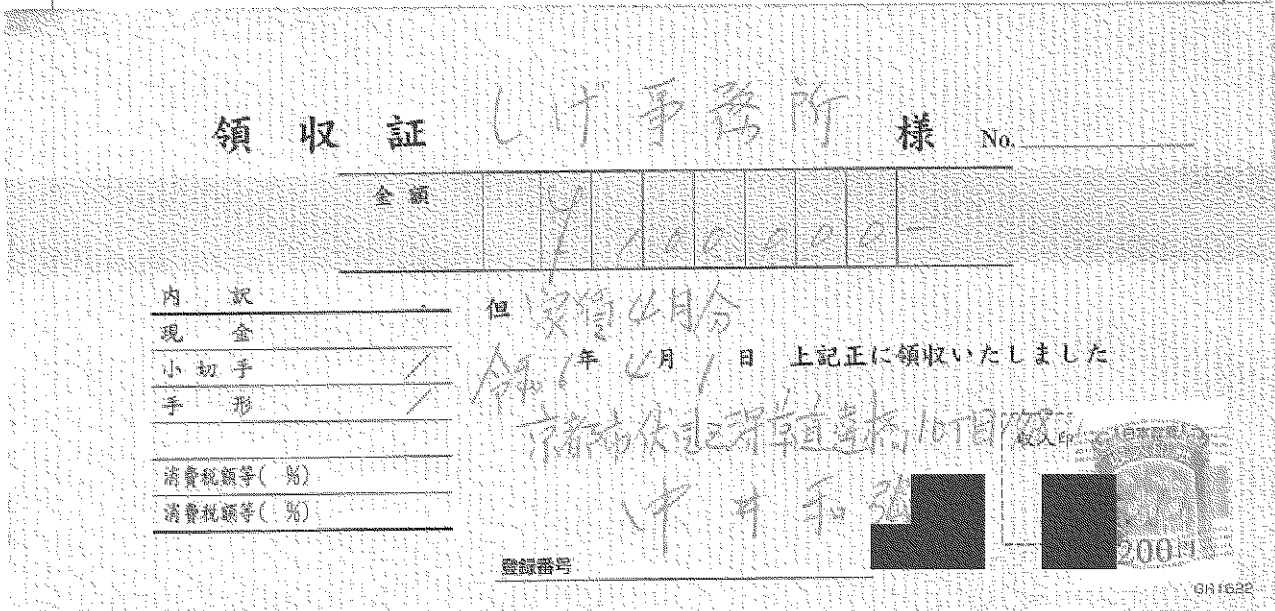 領収証 しげ事務所 様 No.
金額 ¥100000-
内訳
現金
小切手
手形
消費税額等( %)
消費税額等( %)
但 家賃4月分
年4月1日 上記正に領収いたしました
京都市伏見区深草直違橋
収入印
中井和
日本
200円
登録番号
GR1622